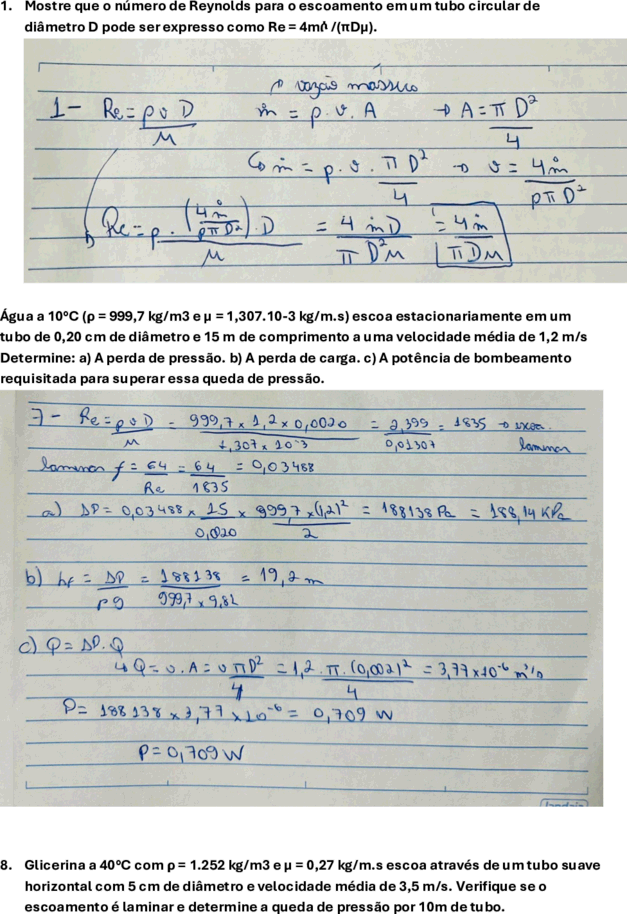 1. Mostre que o número de Reynolds para o escoamento em um tubo circular de
diâmetro D pode ser expresso como Re = 4ṁ /(πDμ).
→ vazão mássica
1- Re = ρ v D / μ   ṁ = ρ . v . A → A = π D² / 4
↳ ṁ = ρ . v . π D² / 4 → v = 4ṁ / ρπD²
Re = ρ . (4ṁ / ρπD²) . D / μ = 4 ṁD / π D²μ = 4ṁ / πDμ
Água a 10ºC (ρ = 999,7 kg/m3 e μ = 1,307.10-3 kg/m.s) escoa estacionariamente em um
tubo de 0,20 cm de diâmetro e 15 m de comprimento a uma velocidade média de 1,2 m/s
Determine: a) A perda de pressão. b) A perda de carga. c) A potência de bombeamento
requisitada para superar essa queda de pressão.
7- Re = ρ v D / μ = 999,7 x 1,2 x 0,0020 / 1,307 x 10⁻³ = 2,399 / 0,01307 = 1835 → escoa.
laminar
laminar f = 64 / Re = 64 / 1835 = 0,03488
a) ΔP = 0,03488 x 15 / 0,0020 x 999,7 x (1,2)² / 2 = 188138 Pa = 188,14 KPa
b) hf = ΔP / ρg = 188138 / 999,7 x 9,81 = 19,2 m
c) P = ΔP . Q
↳ Q = v . A = v π D² / 4 = 1,2 . π . (0,002)² / 4 = 3,77 x 10⁻⁶ m³/s
P = 188138 x 3,77 x 10⁻⁶ = 0,709 W
P = 0,709 W
8. Glicerina a 40ºC com ρ = 1.252 kg/m3 e μ = 0,27 kg/m.s escoa através de um tubo suave
horizontal com 5 cm de diâmetro e velocidade média de 3,5 m/s. Verifique se o
escoamento é laminar e determine a queda de pressão por 10m de tubo.